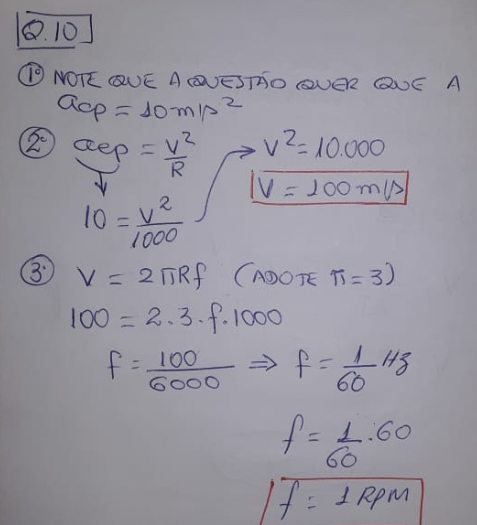 Q.10
1º NOTE QUE A QUESTÃO QUER QUE A
acp = 10 m/s²
2º acp = V²/R → V² = 10.000
V = 100 m/s
10 = V²/1000
3º V = 2πRf (ADOTE π = 3)
100 = 2.3.f.1000
f = 100/6000 ⇒ f = 1/60 Hz
f = 1/60 . 60
f = 1 RPM